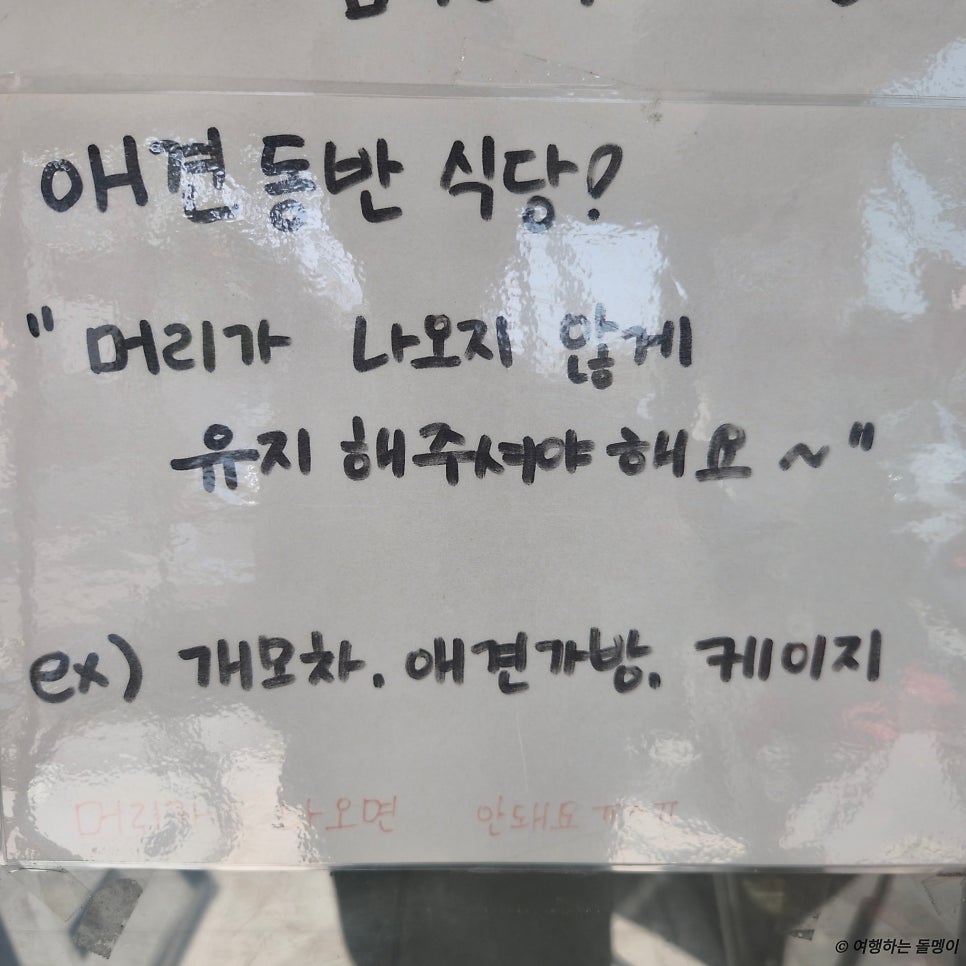 애견 동반 식당?
" 머리가 나오지 않게
유지 해주셔야 해요 ~ "
ex) 개모차. 애견가방. 케이지
머리가 나오면 안돼요 ㅠㅠ
© 여행하는 돌멩이